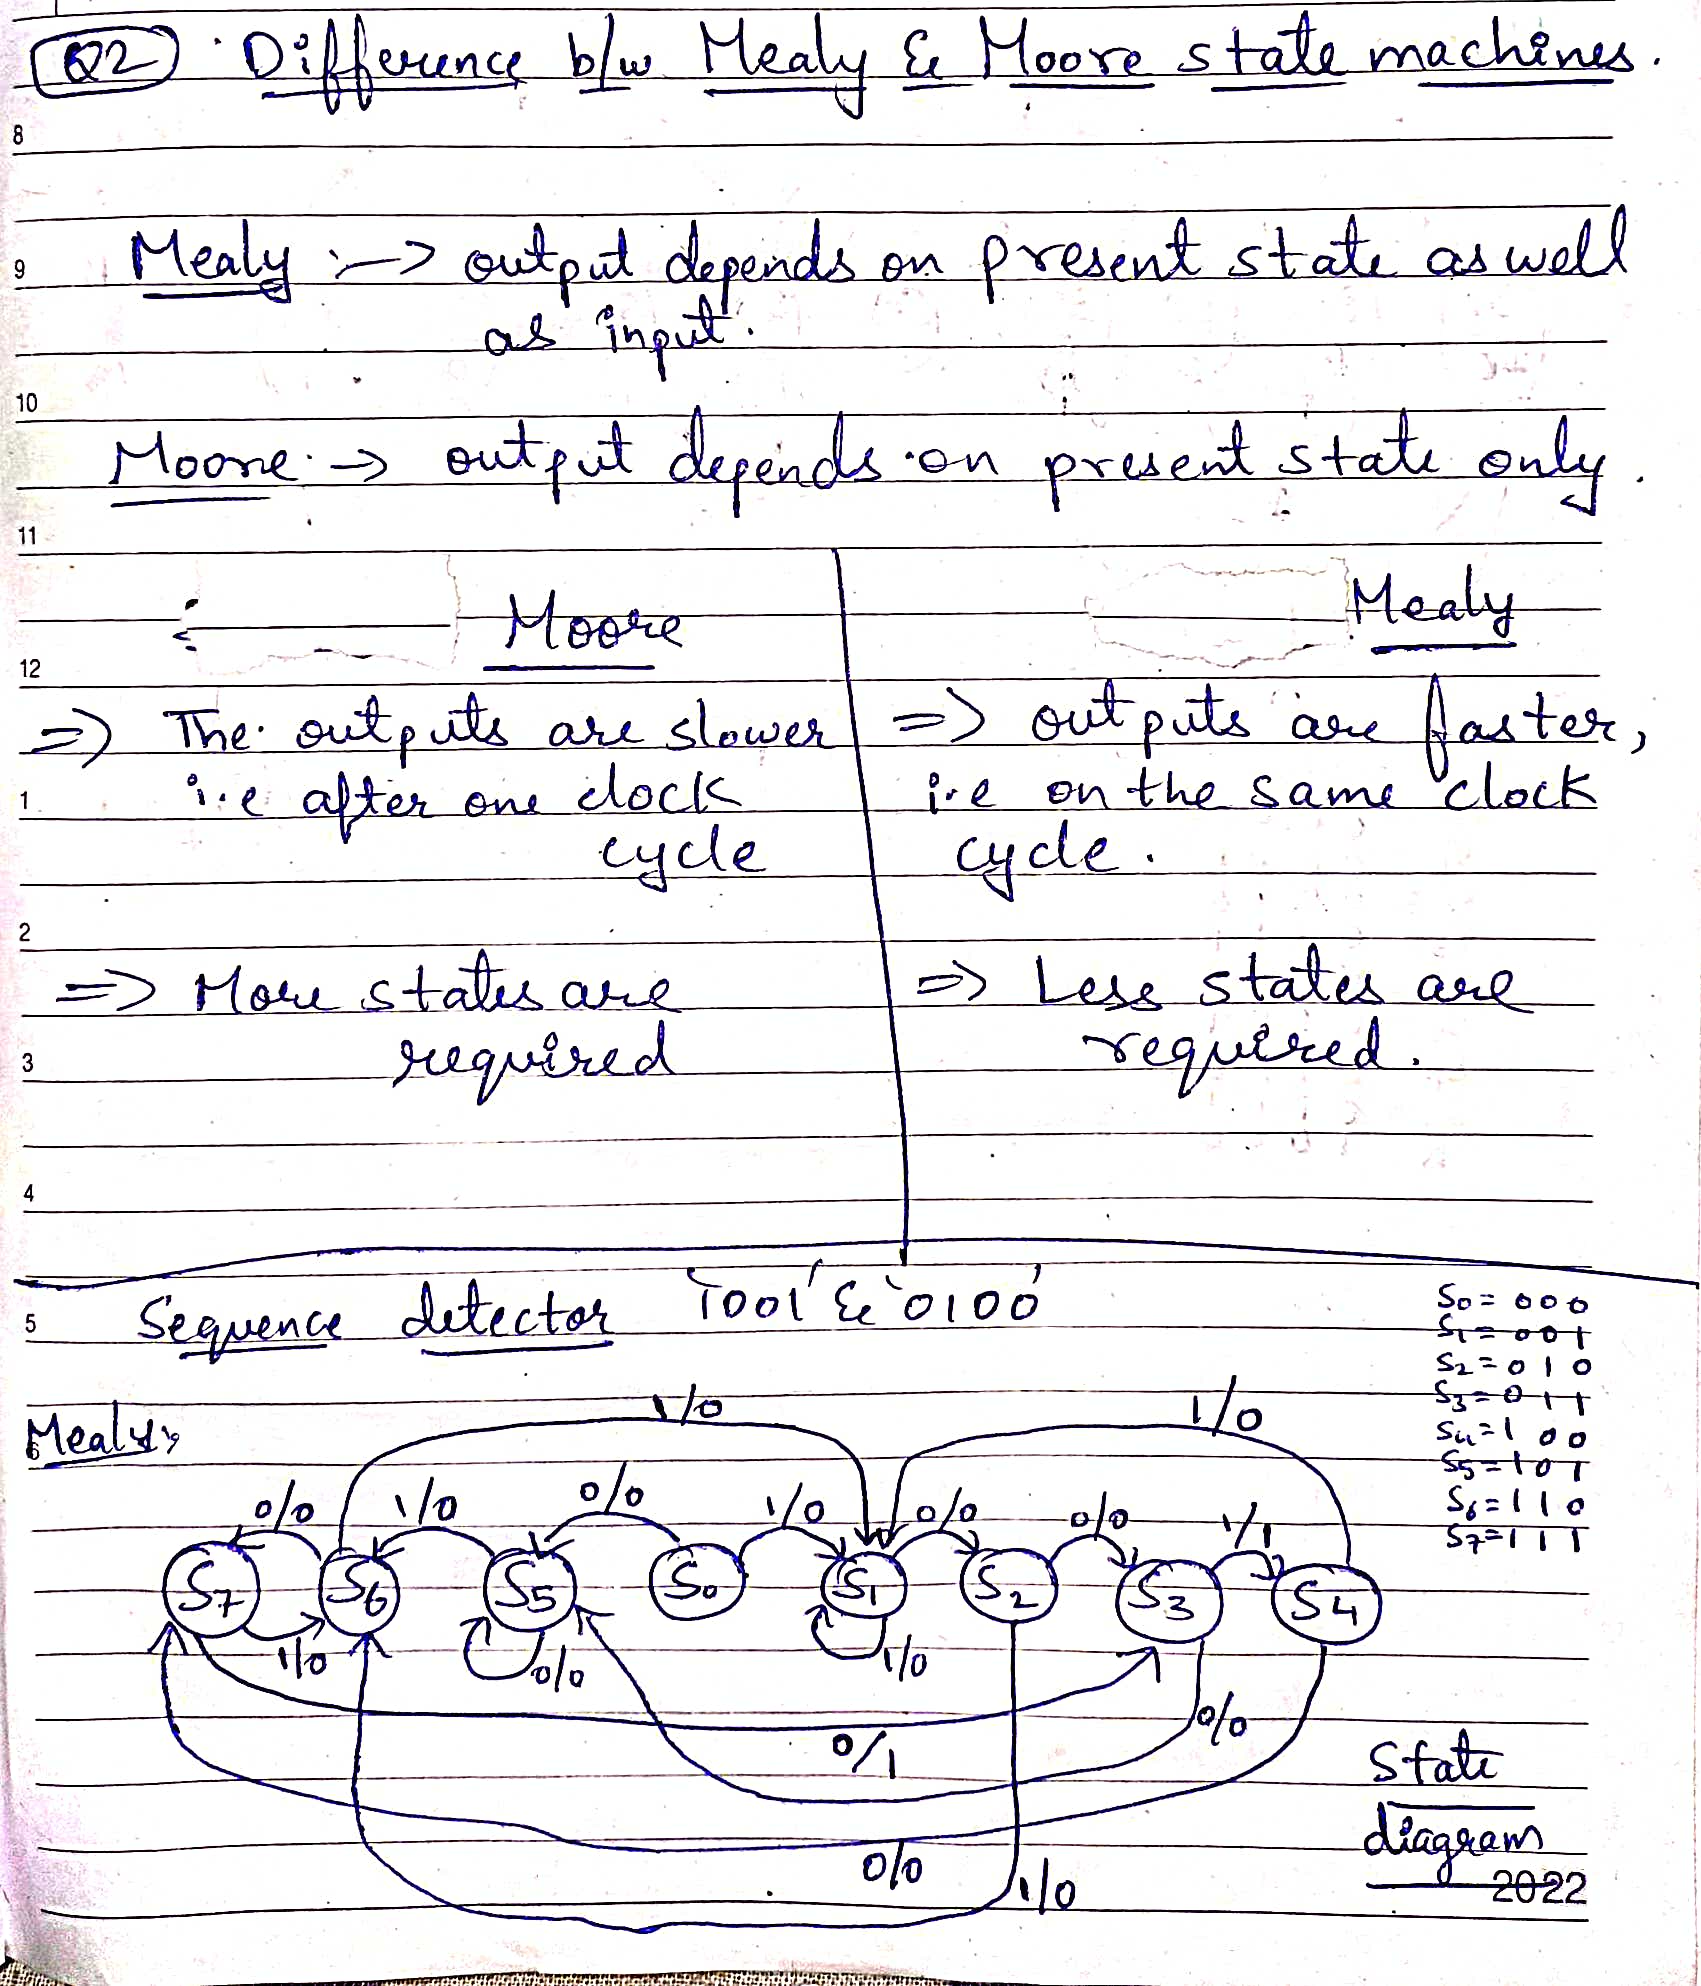 Q2 Difference b/w Mealy & Moore state machines.
8
9 Mealy :-> output depends on present state as well
as input.
10
Moore -> output depends on present state only.
11
Moore Mealy
12
=> The outputs are slower
1 i.e after one clock
cycle
=> outputs are faster,
i.e on the same clock
cycle.
2
=> More states are
3 required
=> Less states are
required.
4
5 Sequence detector '1001' & '0100'
S0 = 000
S1 = 001
S2 = 010
S3 = 011
S4 = 100
S5 = 101
S6 = 110
S7 = 111
6 Mealy:
1/0 1/0
0/0 1/0 0/0 1/0 0/0 0/0 1/1
S7 S6 S5 S0 S1 S2 S3 S4
1/0 0/0 1/0
0/1 0/0
0/0 1/0
State
diagram
2022